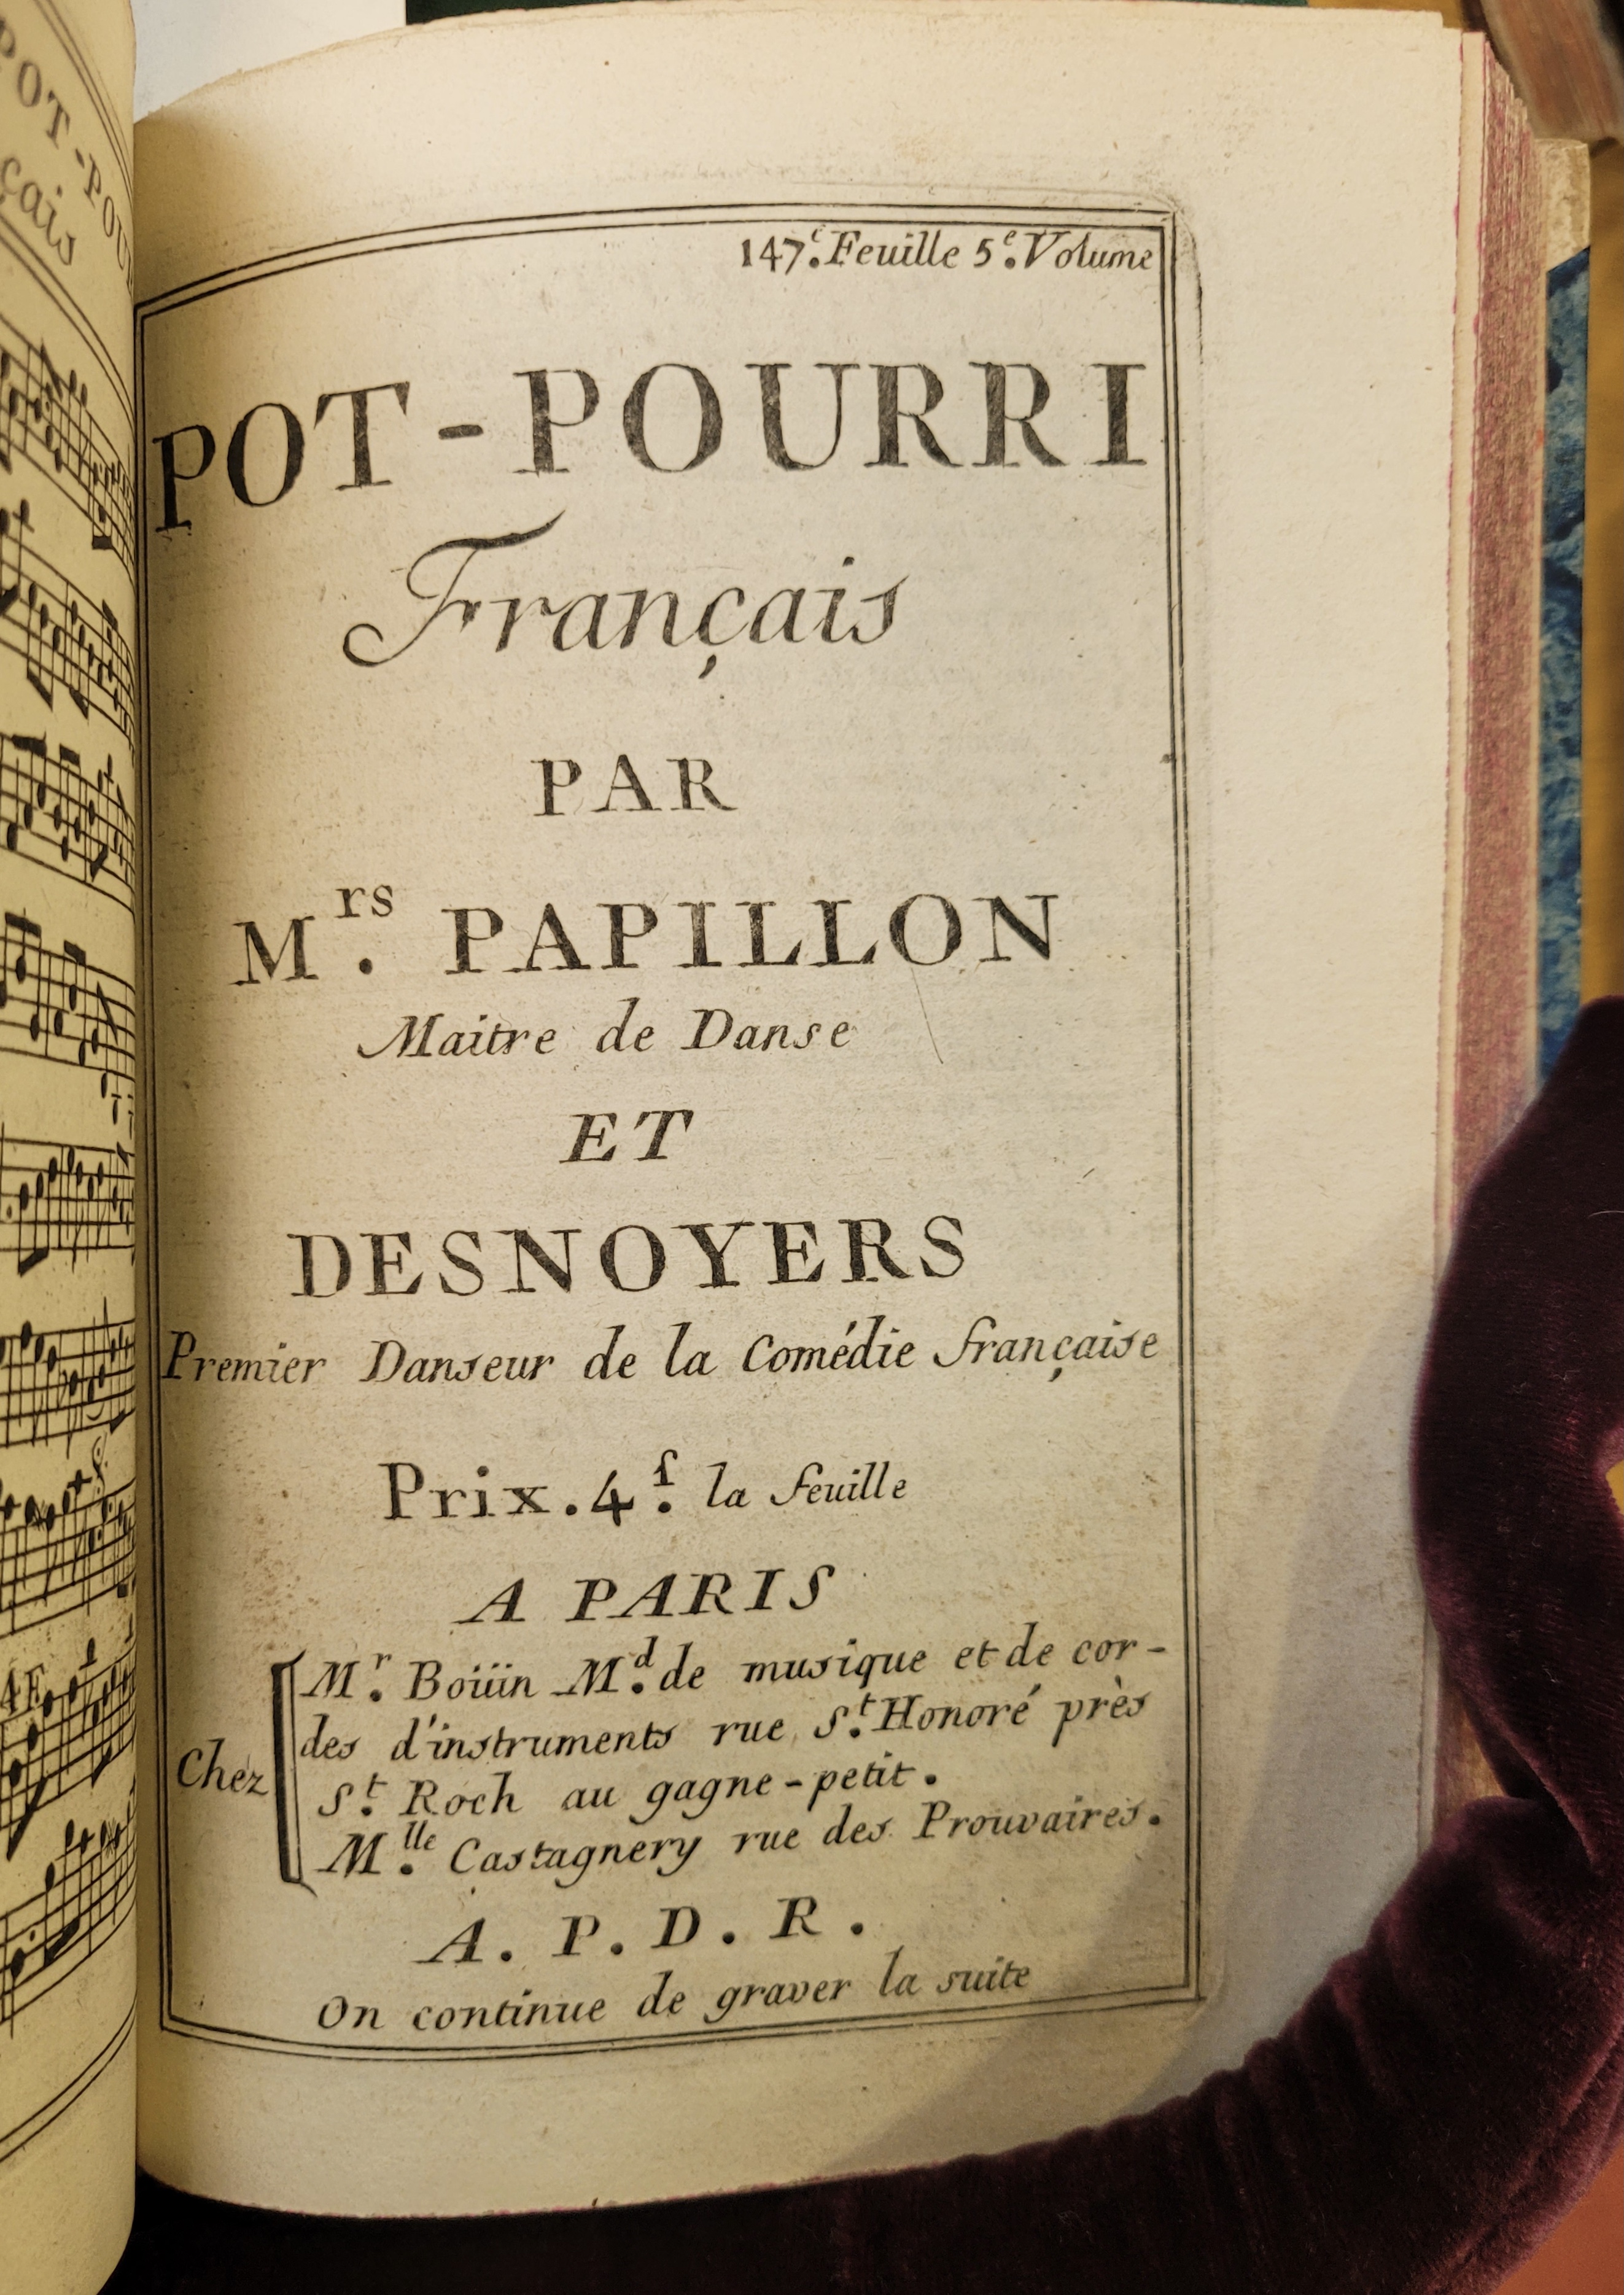 POT-POU
çais
147.e Feuille 5.e Volume
POT-POURRI
Français
PAR
M.rs PAPILLON
Maitre de Danse
ET
DESNOYERS
Premier Danseur de la Comédie française
Prix. 4.ſ la feuille
A PARIS
Chez
M.r Boüin M.d de musique et de cor-
des d'instruments rue S.t Honoré près
S.t Roch au gagne-petit.
M.lle Castagnery rue des Prouvaires.
A. P. D. R.
On continue de graver la suite